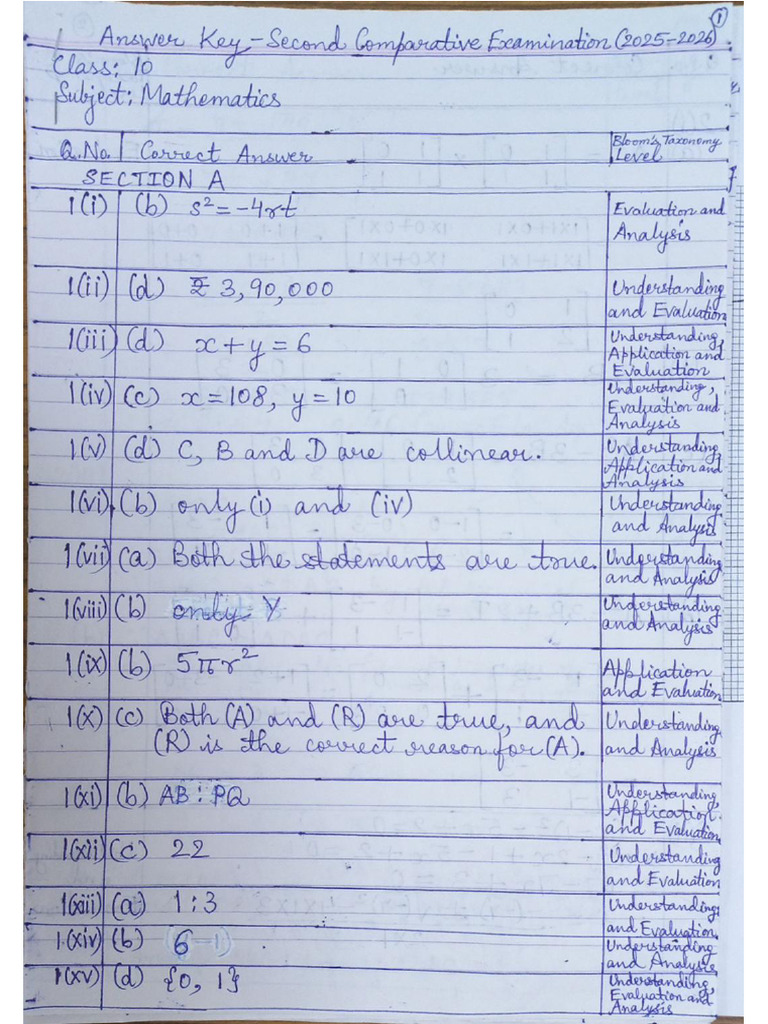 1
Answer Key - Second Comparative Examination (2025-2026)
Class: 10
Subject: Mathematics
Q.No. Correct Answer Bloom's Taxonomy Level
SECTION A
1(i) (b) s² = -4rt Evaluation and Analysis
1(ii) (d) ₹ 3,90,000 Understanding and Evaluation
1(iii) (d) x + y = 6 Understanding, Application and Evaluation
1(iv) (c) x = 108, y = 10 Understanding, Evaluation and Analysis
1(v) (d) C, B and D are collinear. Understanding, Application and Analysis
1(vi) (b) only (i) and (iv) Understanding and Analysis
1(vii) (a) Both the statements are true. Understanding and Analysis
1(viii) (b) only Y Understanding and Analysis
1(ix) (b) 5πr² Application and Evaluation
1(x) (c) Both (A) and (R) are true, and Understanding
(R) is the correct reason for (A). and Analysis
1(xi) (b) AB : PQ Understanding, Application and Evaluation
1(xii) (c) 22 Understanding and Evaluation
1(xiii) (a) 1 : 3 Understanding and Evaluation
1(xiv) (b) 6 Understanding and Analysis
1(xv) (d) {0, 1} Understanding, Evaluation and Analysis